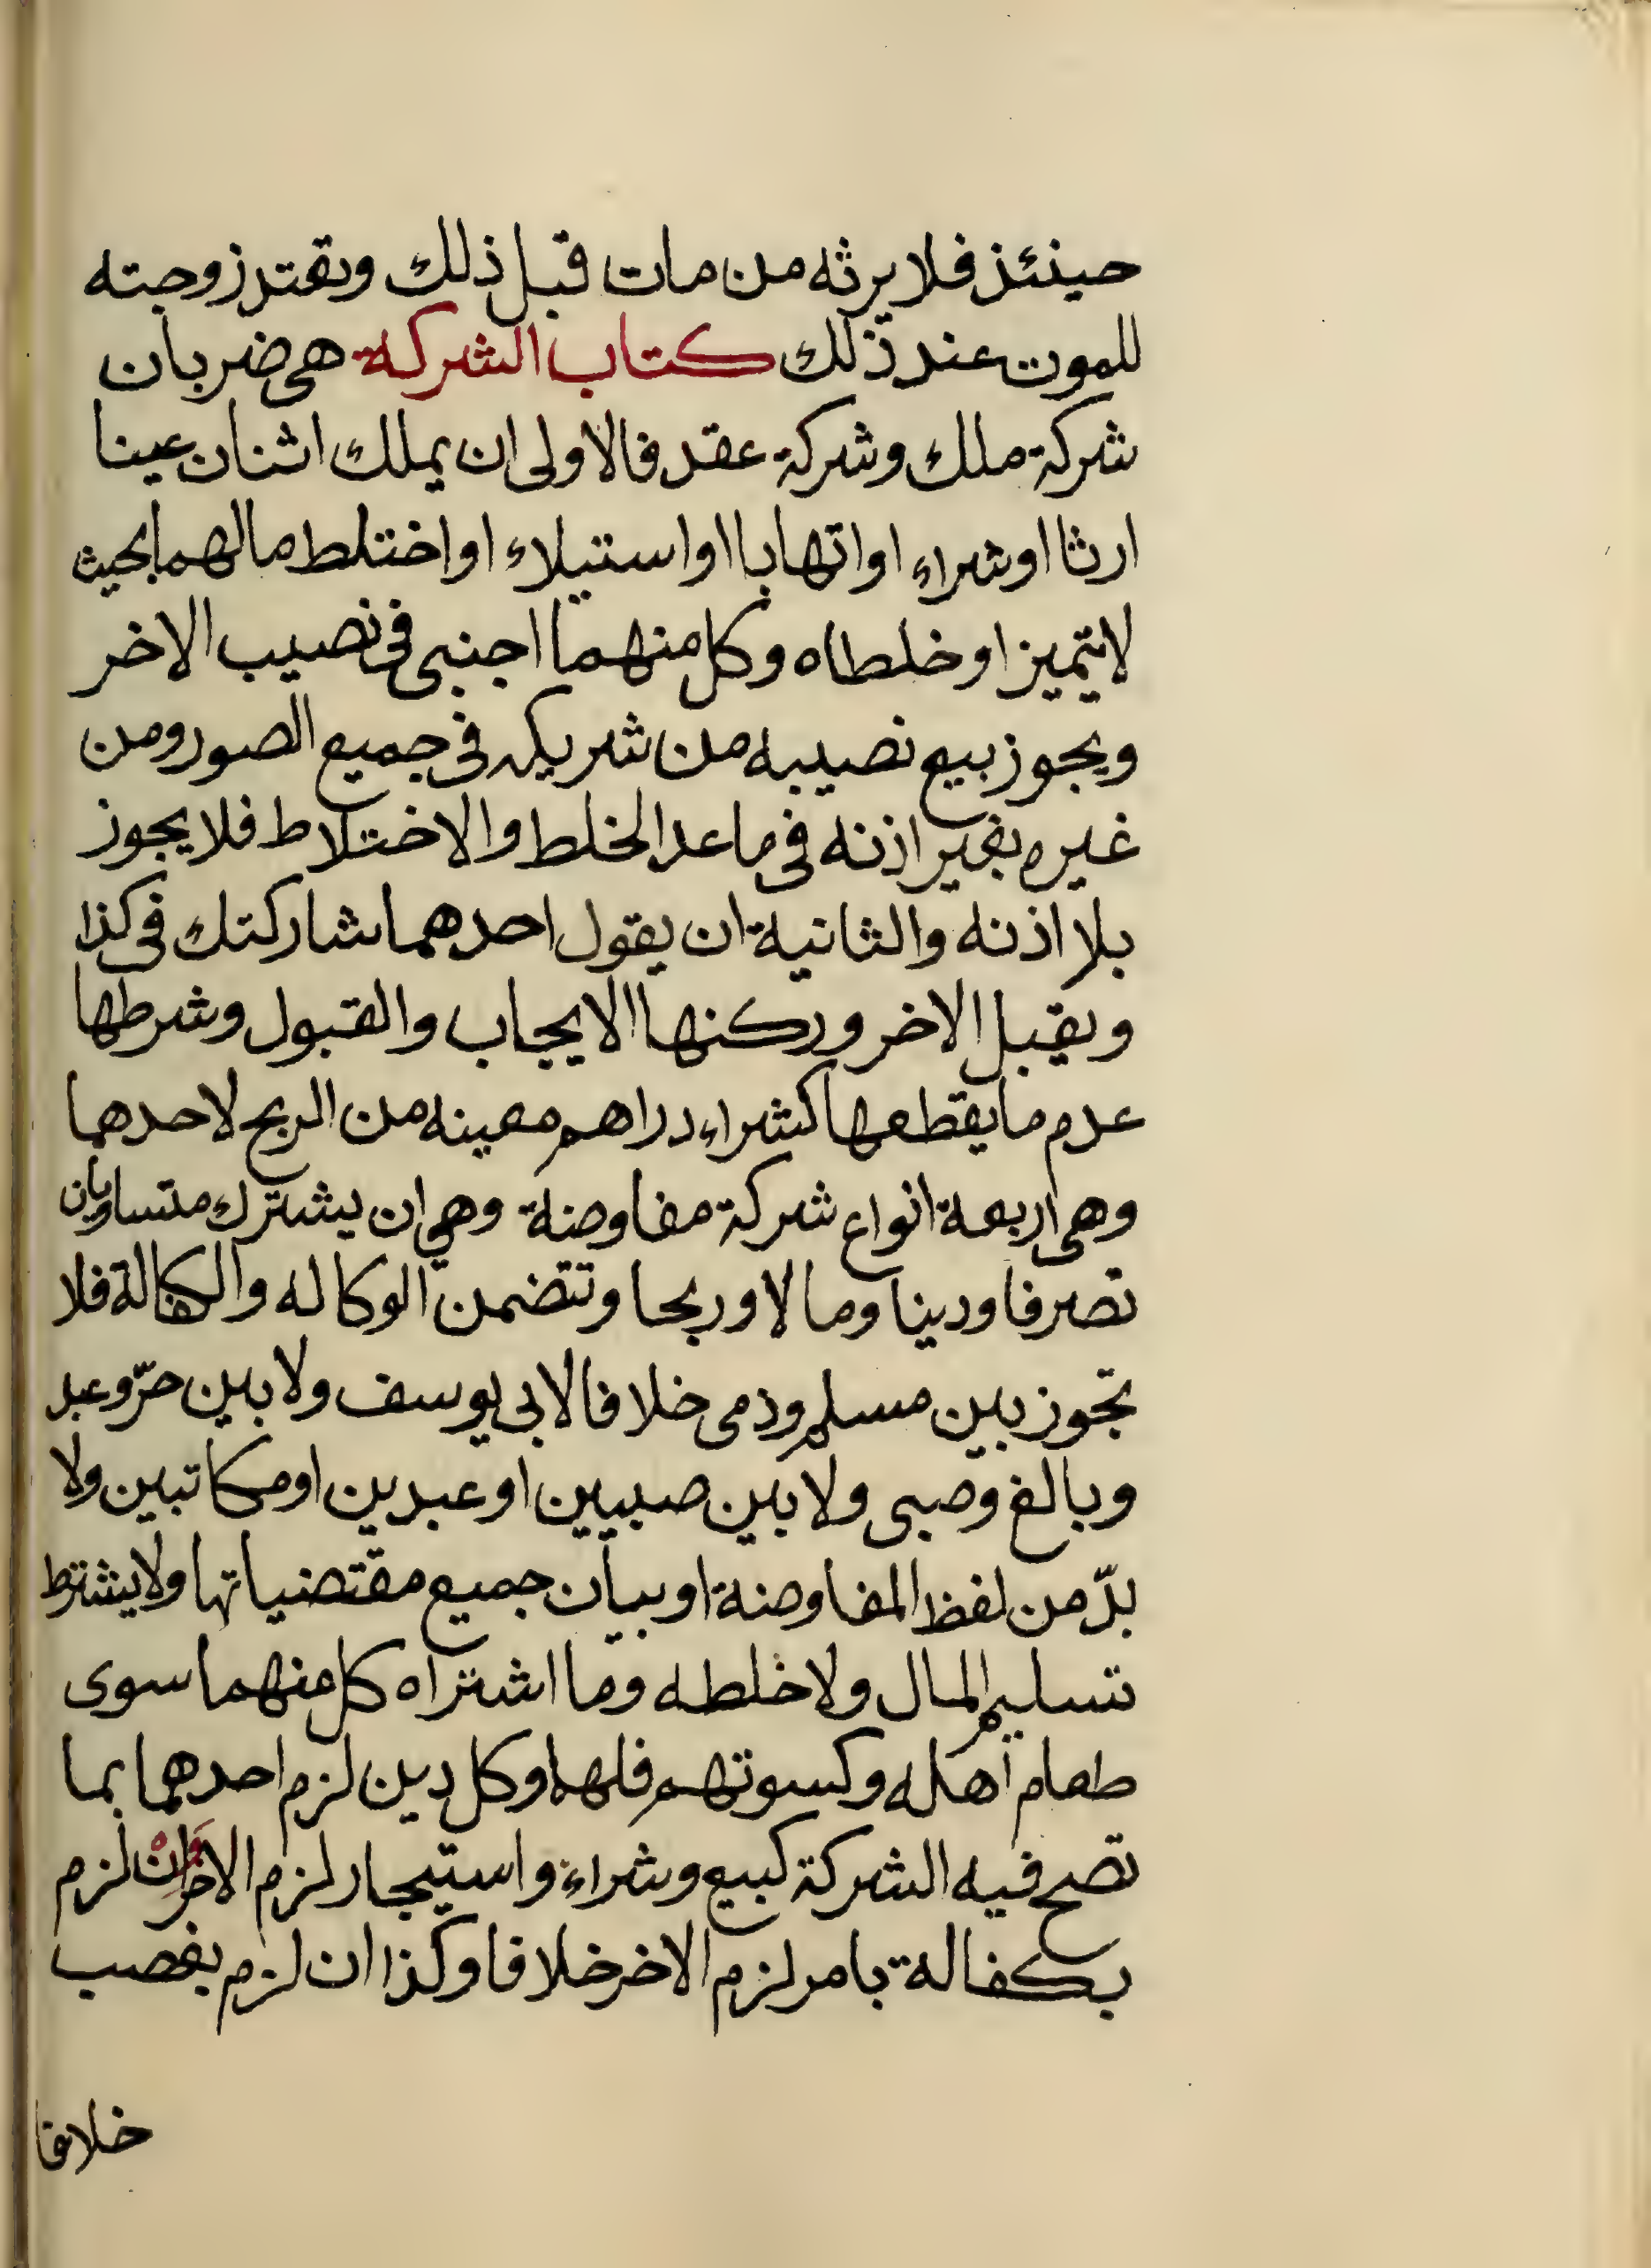 حينئذ فلا يرثه من مات قبل ذلك وتعتد زوجته
للموت عند ذلك كتاب الشركة هى ضربان
شركة ملك وشركة عقد فالاولى ان يملك اثنان عينا
ارثا او شراء او اتهابا او استيلاء او اختلط مالهما بحيث
لا يتميز او خلطاه وكل منهما اجنبى فى نصيب الاخر
ويجوز بيع نصيبه من شريكه فى جميع الصور ومن
غيره بغير اذنه فى ما عدا الخلط والاختلاط فلا يجوز
بلا اذنه والثانية ان يقول احدهما شاركتك فى كذا
ويقبل الاخر وركنها الايجاب والقبول وشرطها
عدم ما يقطعها كشراء دراهم معينه من الربح لاحدهما
وهى اربعة انواع شركة مفاوضة وهى ان يشترك متساويان
تصرفا ودينا ومالا وربحا وتتضمن الوكاله والكفالة فلا
تجوز بين مسلم وذمى خلافا لابى يوسف ولا بين حرّ وعبد
وبالغ وصبى ولا بين صبيين او عبدين او مكاتبين ولا
بدّ من لفظ المفاوضة او بيان جميع مقتضياتها ولا يشترط
تسليم المال ولا خلطه وما اشتراه كل منهما سوى
طعام اهله وكسوتهم فلهما وكل دين لزم احدهما بما
تصح فيه الشركة كبيع وشراء واستيجار لزم الاخر وان لزم
بكفالة بامر لزم الاخر خلافا وكذا ان لزم بغصب
خلافا